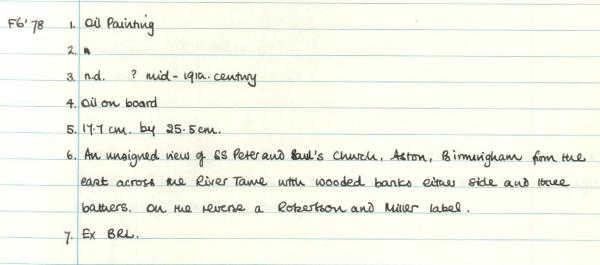 F6'78 1. Oil Painting
2. "
3. n.d. ? mid-19th. century
4. Oil on board
5. 17.7 cm. by 25.5 cm.
6. An unsigned view of SS Peter and Paul's Church, Aston, Birmingham from the
east across the River Tame with wooded banks either side and three
bathers. On the reverse a Robertson and Miller label.
7. Ex BRL.